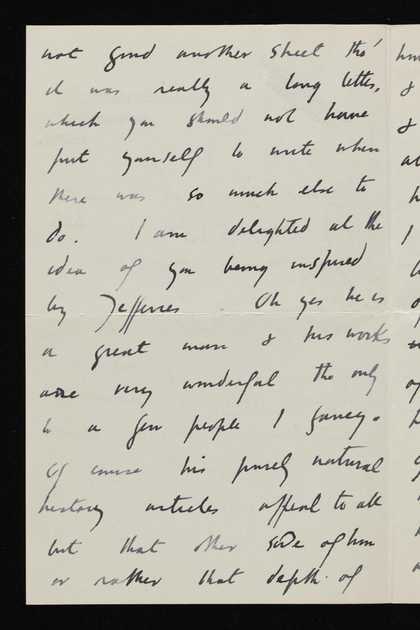 not find another sheet tho'
it was really a long letter,
which you should not have
put yourself to write when
there was so much else to
do. I am delighted at the
idea of you being inspired
by Jefferies. Oh yes he is
a great man & his works
are very wonderful tho only
to a few people I fancy.
Of course his purely natural
history articles appeal to all
but that other side of him
or rather that depth of